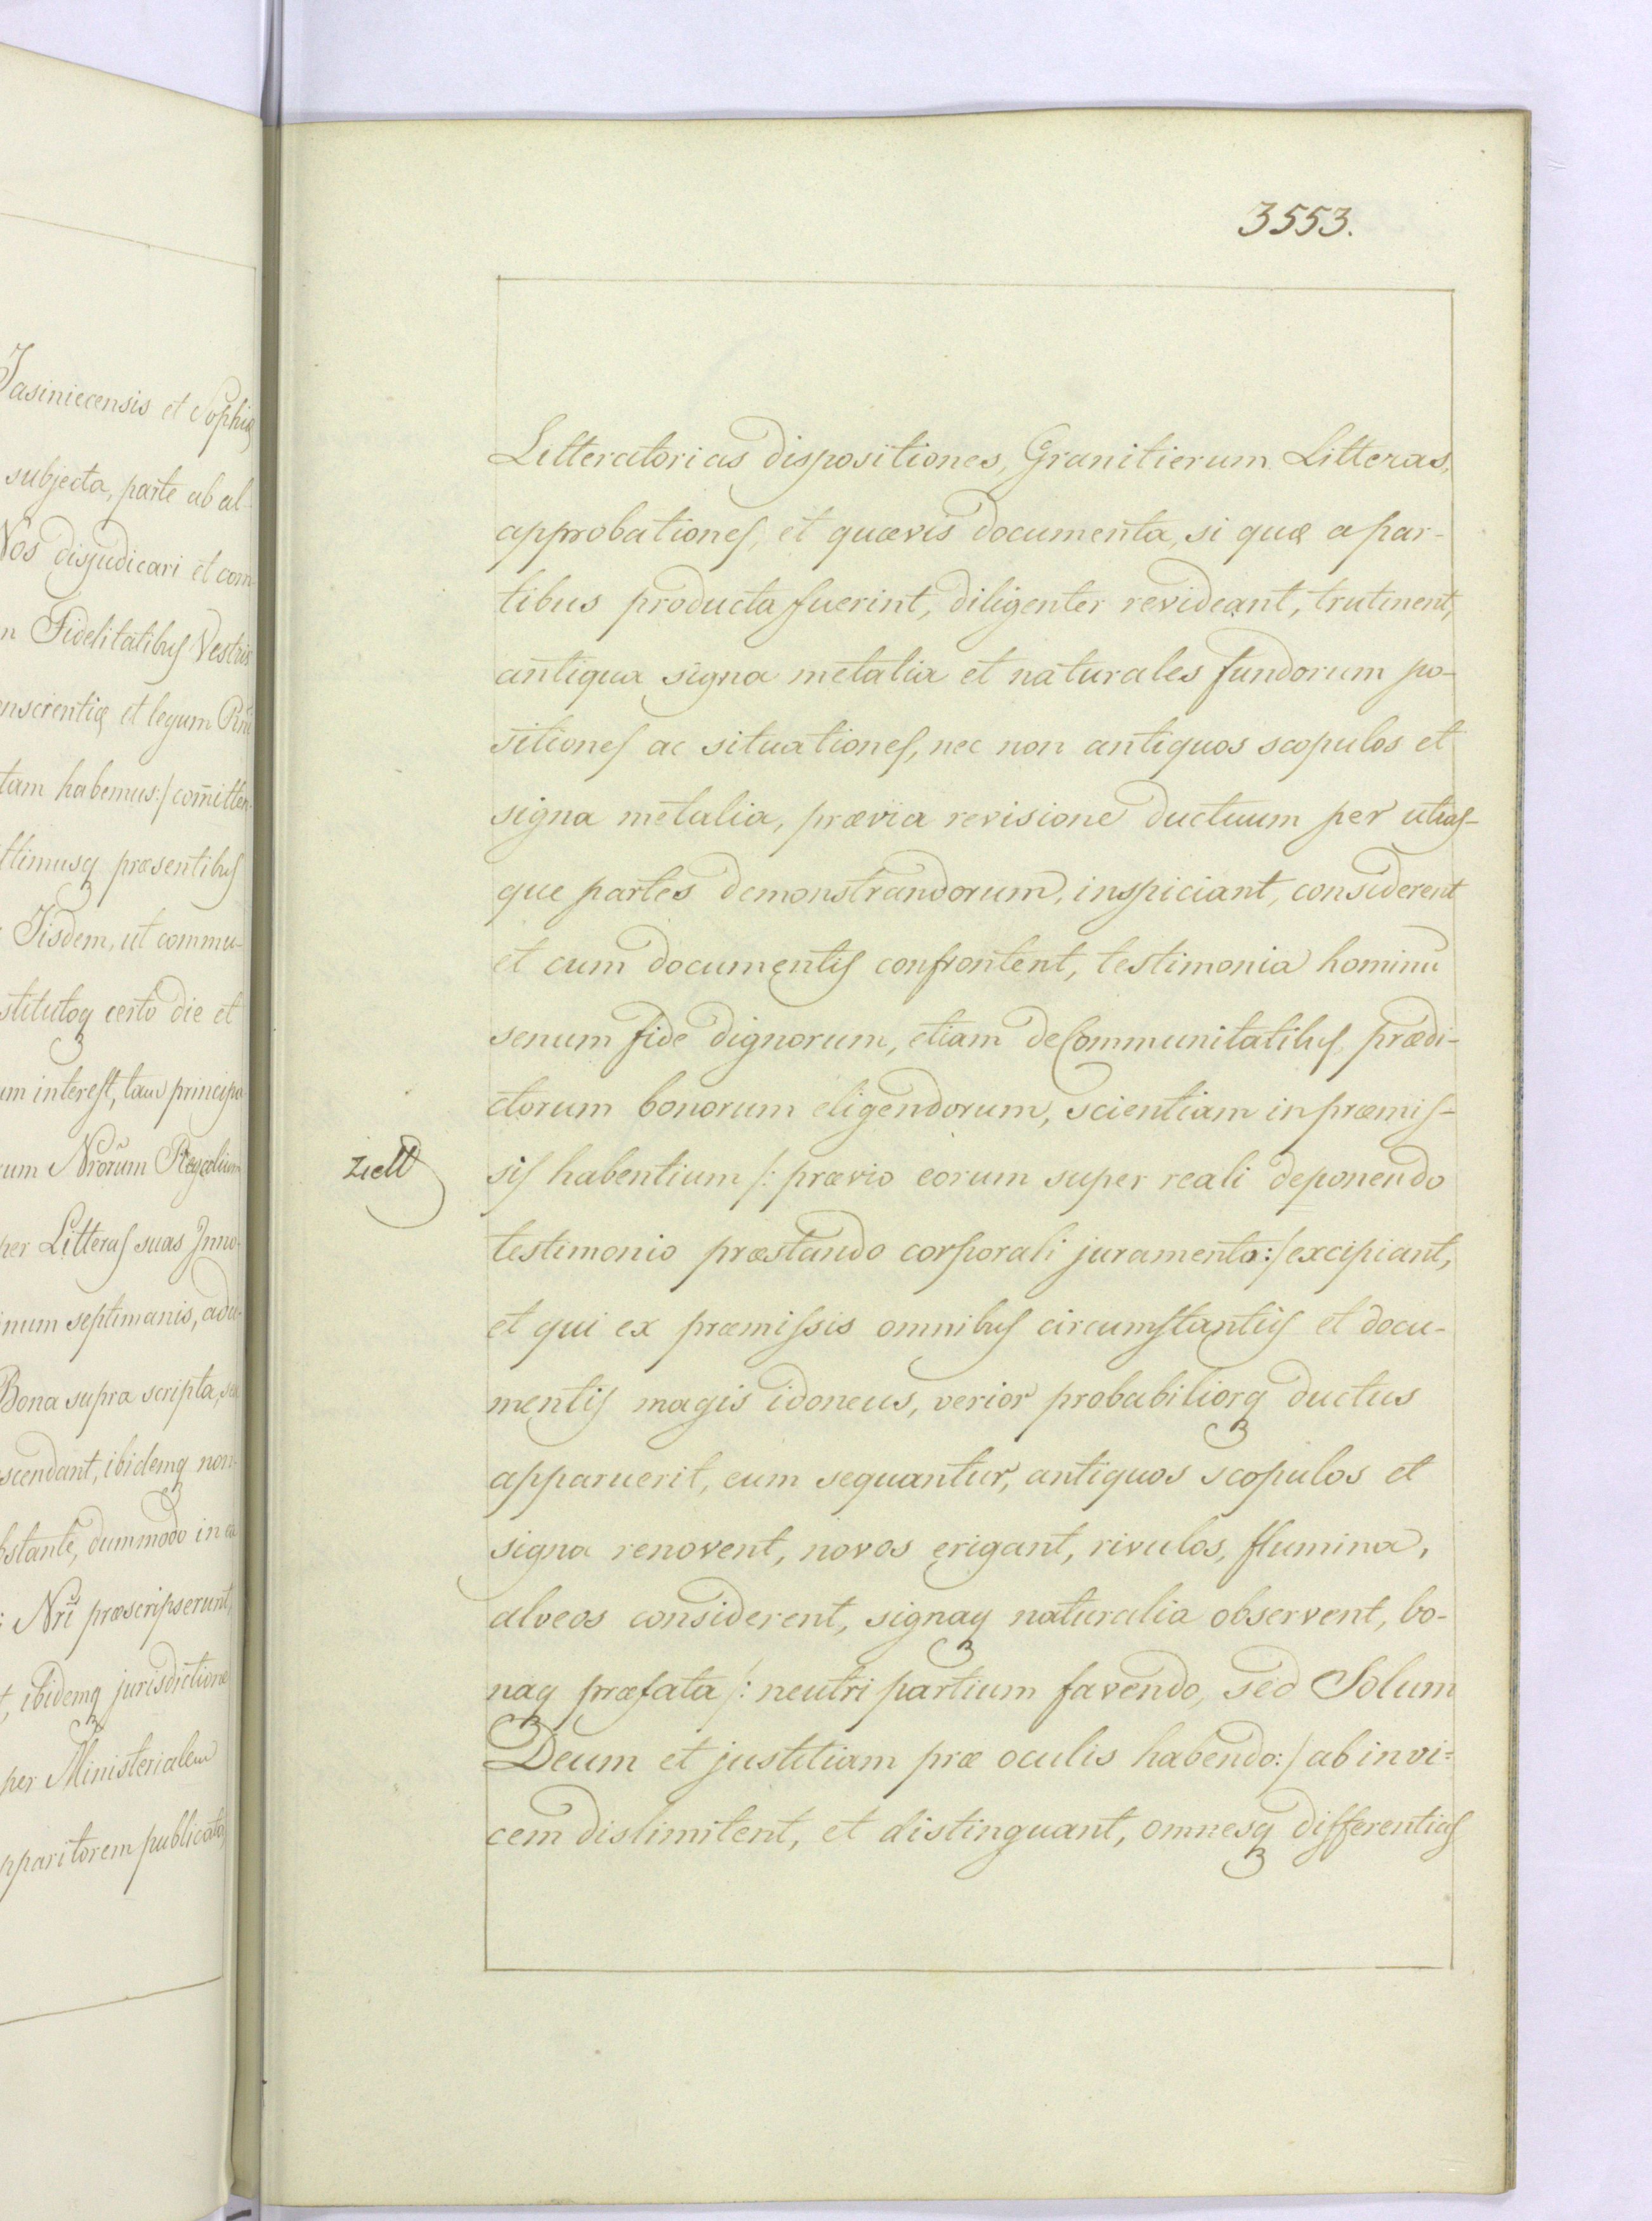 Jasiniecensis et Sophiæ
subjecta, parte ab al-
Nos disjudicari et com-
Fidelitatibus Vestris
conscientiæ et legum Rni
tam habemus:/ com̄itten-
ttimusq3 præsentibus
Iisdem, ut commu-
stitutoq3 certo die et
interest, tam principa
cum Nrorum Regalium
per Litteras suas Inno-
num septimanis, adu-
Bona supra scripta, seu
scendant, ibidemq3 non-
bstante, dummodo in ea
Nri præscripserunt,
ibidemq3 jurisdictione
per Ministerialem
pparitorem publicato,
3553.
Litteratorias dispositiones, Granitierum Litteras,
approbationes, et quævis documenta, si quæ a par-
tibus producta fuerint, diligenter revideant, trutinent,
antiqua signa metalia et naturales fundorum po-
sitiones ac situationes, nec non antiquos scopulos et
signa metalia, prævia revisione ductuum per utras-
que partes demonstrandorum, inspiciant, considerent
et cum documentis confrontent, testimonia hominū
senum fide dignorum, etiam de Communitatibus prædi-
ctorum bonorum eligendorum, scientiam in præmis-
sis habentium /: prævio eorum super reali deponendo
testimonio præstando corporali juramento:/ excipiant,
et qui ex præmissis omnibus circumstantiis et docu-
mentis magis idoneus, verior probabiliorq3 ductus
apparuerit, eum sequantur, antiquos scopulos et
signa renovent, novos erigant, rivulos, flumina,
alveos considerent, signaq3 naturalia observent, bo-
naq3 præfata /: neutri partium favendo, sed Solum
Deum et justitiam præ oculis habendo:/ ab invi=
cem dislimitent, et distinguant, omnesq3 differentias